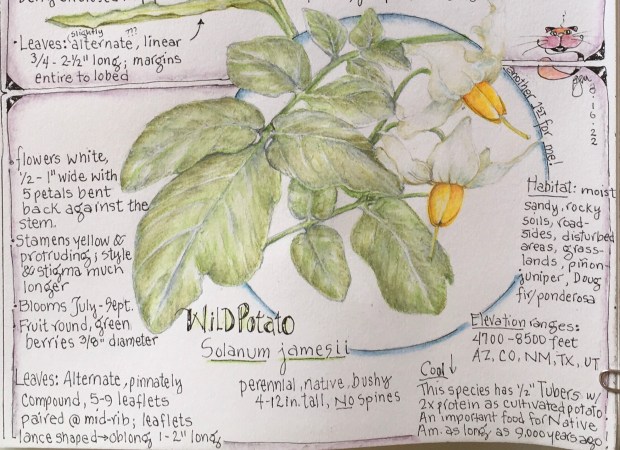 Leaves: alternate, linear
slightly ???
3/4 - 2½" long; margins
entire to lobed
another 1st for me!
8·16·22
flowers white,
½ - 1" wide with
5 petals bent
back against the
stem.
Stamens yellow &
protruding; style
& stigma much
longer
Blooms July-Sept.
Fruit round, green
berries 3/8" diameter
Leaves: Alternate, pinnately
compound, 5-9 leaflets
paired @ mid-rib; leaflets
lance shaped→oblong, 1-2" long
WiLD Potato
Solanum jamesii
perennial, native, bushy
4-12 in. tall, No Spines
Habitat: moist
sandy, rocky
soils, road-
sides, disturbed
areas, grass-
lands, piñon-
juniper, Doug
fir/ponderosa
Elevation ranges:
4700 - 8500 feet
AZ, CO, NM, TX, UT
Cool ↓
This species has ½" Tubers w/
2x protein as cultivated potato
An important food for Native
Am. as long as 9,000 years ago!